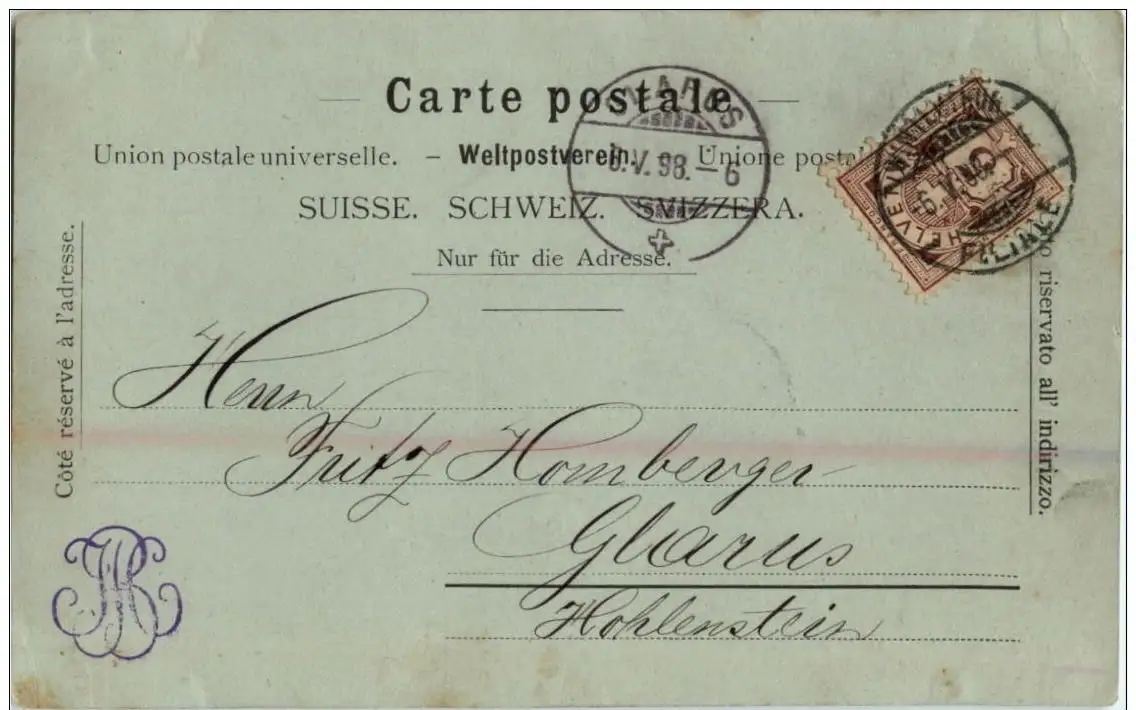 Carte postale
Union postale universelle. – Weltpostverein. – Unione postal
SUISSE. SCHWEIZ. SVIZZERA.
Nur für die Adresse.
Côté réservé à l'adresse.
riservato all' indirizzo.
GLARUS
6.V.98.–6
HELVETIA
FRANCO
6.V.98
FILIALE
Herrn
Fritz Homberger
Glarus
Hohlenstein